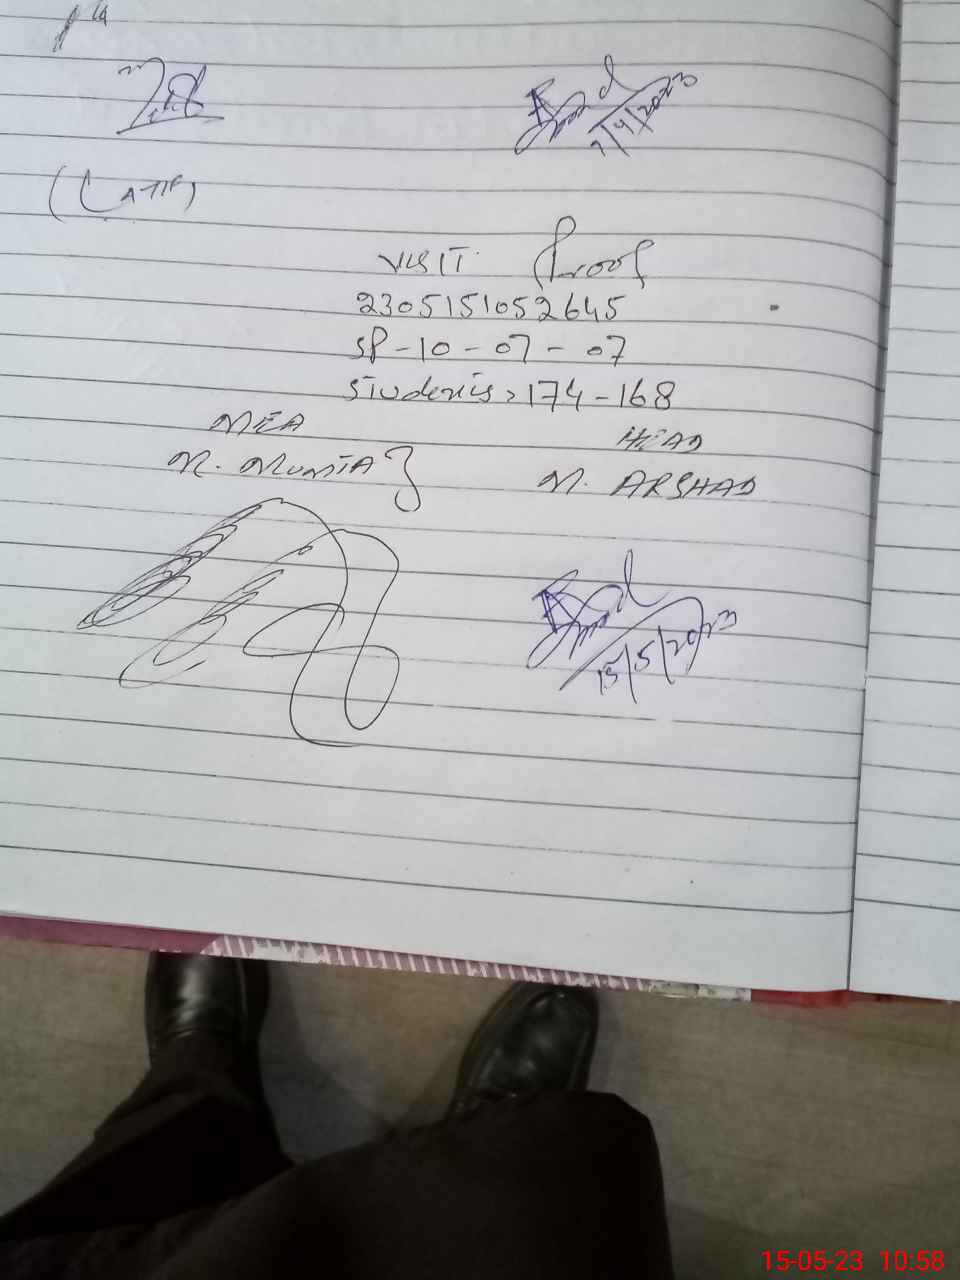 7/4/2023
(LATIF)
VISIT Proof
2305151052645
SP-10-07-07
Students > 174-168
MEA
HEAD
M. MUMTAZ
M. ARSHAD
15/5/2023
15-05-23 10:58